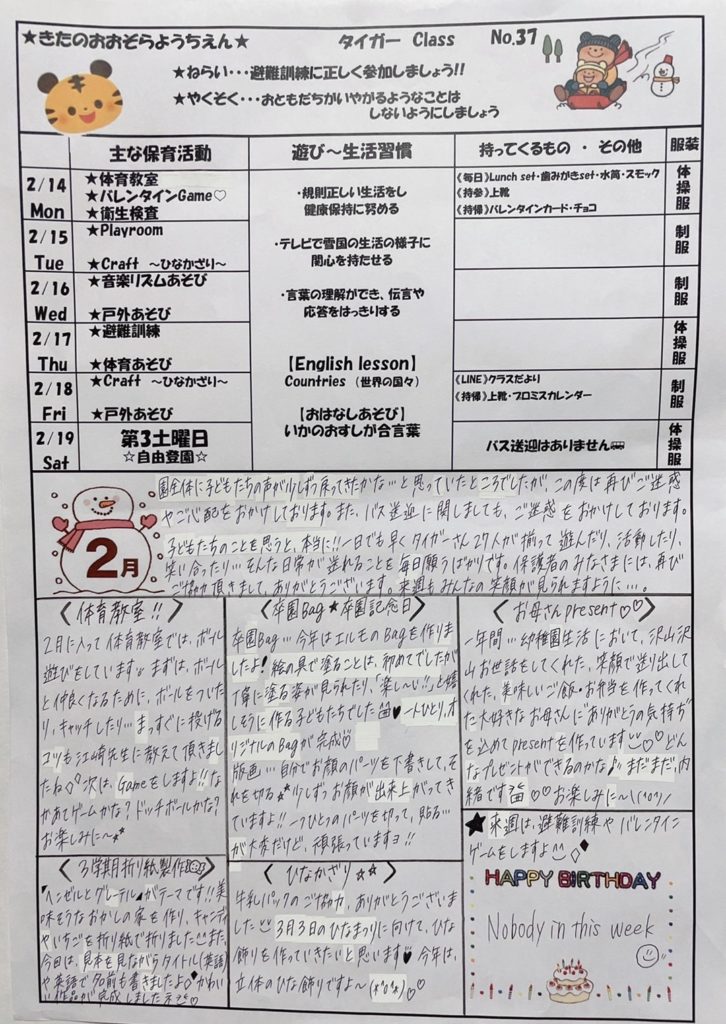 ★きたのおおぞらようちえん★ タイガー Class No.37
★ねらい・・・避難訓練に正しく参加しましょう!!
★やくそく・・・おともだちがいやがるようなことは
しないようにしましょう
主な保育活動 遊び～生活習慣 持ってくるもの・その他 服装
2/14
Mon
★体育教室
★バレンタインGame♡
★衛生検査
《毎日》Lunch set・歯みがきset・水筒・スモック
《持参》上靴
《持帰》バレンタインカード・チョコ
体操服
2/15
Tue
★Playroom
★Craft ～ひなかざり～
制服
2/16
Wed
★音楽リズムあそび
★戸外あそび
制服
2/17
Thu
★避難訓練
★体育あそび
体操服
2/18
Fri
★Craft ～ひなかざり～
★戸外あそび
《LINE》クラスだより
《持帰》上靴・プロミスカレンダー
制服
2/19
Sat
第3土曜日
☆自由登園☆
バス送迎はありません
体操服
・規則正しい生活をし
健康保持に努める
・テレビで雪国の生活の様子に
関心を持たせる
・言葉の理解ができ、伝言や
応答をはっきりする
【English lesson】
Countries (世界の国々)
【おはなしあそび】
いかのおすしが合言葉
2月
園全体に子どもたちの声が少しずつ戻ってきたかな…と思っていたところでしたが、この度は再びご迷惑
やご心配をおかけしております。また、バス送迎に関しましても、ご迷惑をおかけしております。
子どもたちのことを思うと、本当に!!一日でも早くタイガーさん27人が揃って遊んだり、活動したり、
笑い合ったり…そんな日常が送れることを毎日願うばかりです。保護者のみなさまには、再び
ご協力頂きまして、ありがとうございます。来週もみんなの笑顔が見られますように…。
〈体育教室!!〉
2月に入って体育教室では、ボール
遊びをしています。まずは、ボール
と仲良くなるために、ボールをついた
り、キャッチしたり…まっすぐに投げる
コツも江崎先生に教えて頂きまし
たね♪◇次は、Gameをしますよ!!な
かあてゲームかな?ドッチボールかな?
お楽しみに～
〈卒園Bag★卒園記念日〉
卒園Bag…今年はエルモのBagを作りま
したよ!絵の具で塗ることは、初めてでしたが
丁寧に塗る姿が見られたり、「楽し～い!!」と嬉
しそうに作る子どもたちでした♥一人ひとり、オ
リジナルのBagが完成♡
版画…自分でお顔のパーツを下書きして、そ
れを切る★少しずつ、お顔が出来上がってき
ていますよ!!一つひとつのパーツを切って、貼る…
が大変だけど、頑張っていますヨ!!
〈お母さんpresent♡♡〉
一年間…幼稚園生活において、沢山沢
山お世話をしてくれた、笑顔で送り出して
くれた、美味しいご飯・お弁当を作ってくれ
た大好きなお母さんに"ありがとうの気持ち"
を込めてpresentを作っています♡♡どん
なプレゼントができるのかな♪まだまだ、内
緒です♡♡お楽しみに～\(^o^)/
★来週は、避難訓練やバレンタイン
ゲームをしますよ◇
HAPPY BiRTHDAY
Nobody in this week
〈3学期折り紙製作〉
「ヘンゼルとグレーテル」がテーマです!!美
味そうなおかしの家を作り、キャンディ
やいちごを折り紙で折りましたまた、
今回は、見本を見ながらタイトル(英語)
や英語で名前も書きましたよ◆かわい
い作品が完成しました
〈ひなかざり☆☆〉
牛乳パックのご協力、ありがとうございま
した 3月3日のひなまつりに向けて、ひな
飾りを作っていきたいと思います♥今年は、
立体のひな飾りですよ～(*^o^*)♡